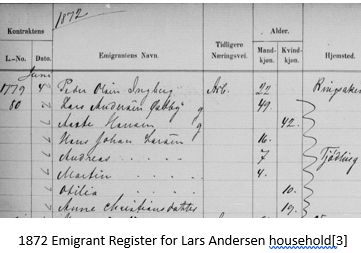 1872
Kontraktens Emigrantens Navn. Tidligere Næringsvei. Alder. Hjemsted.
L.-No. Dato. Mandkjøn. Kvindkjøn.
Juni
1779 4 Peder Olsin Arb. 22 Ringsaker
80 Lars Andersen g 49
Hansen g 42.
Hans Johan Larsen 16.
Andreas . . . . . 7 Tjødling
Martin . . . . . 4.
Otilia . . . . . 10.
Anne Christiansdatter 19.
1872 Emigrant Register for Lars Andersen household[3]